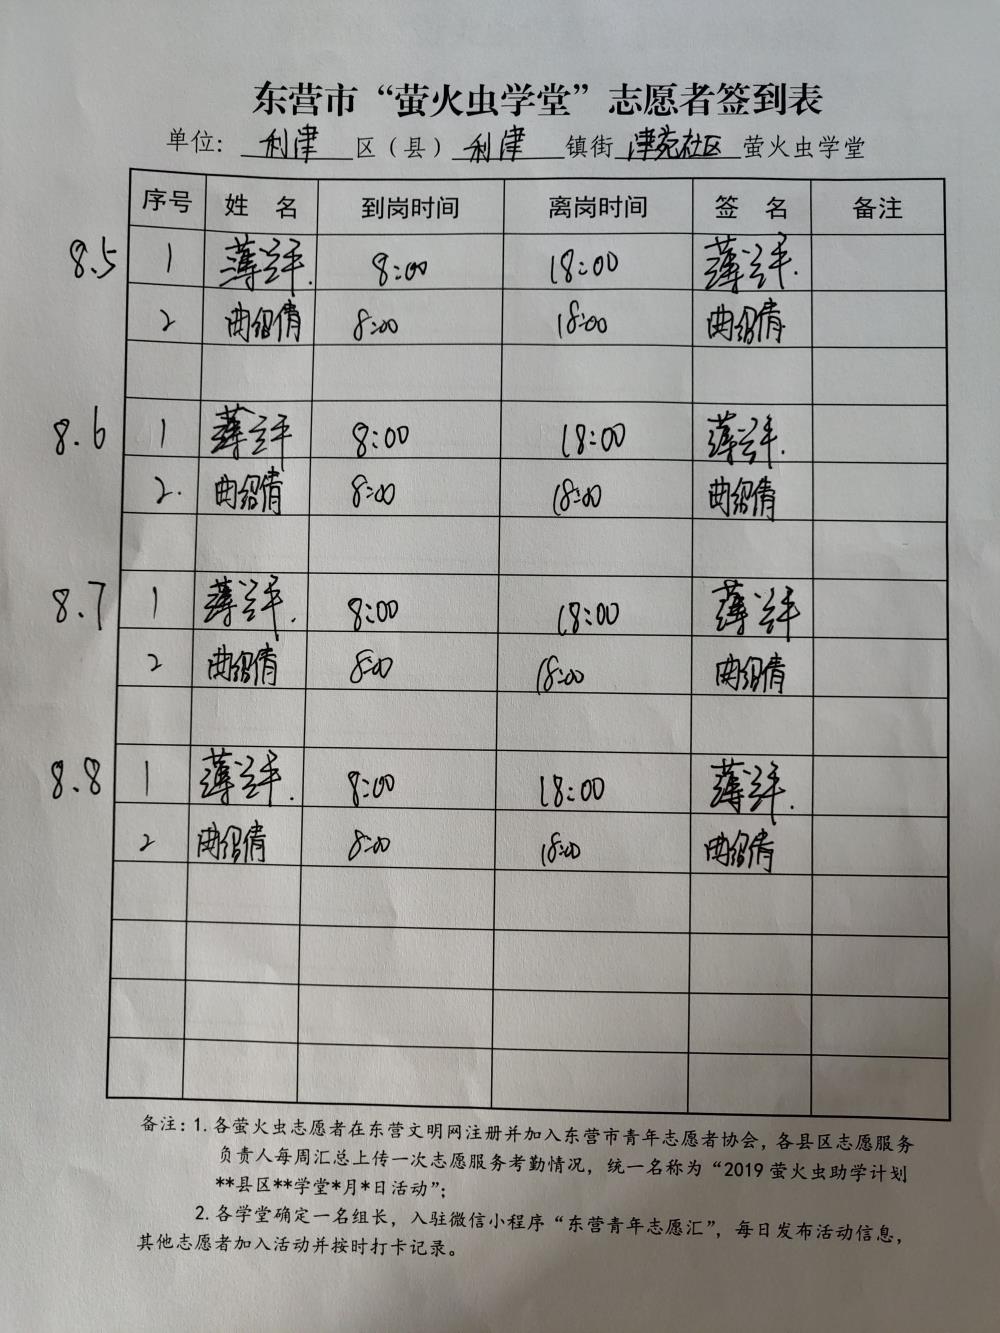 东营市“萤火虫学堂”志愿者签到表
单位：利津区（县）利津镇街津苑社区萤火虫学堂
序号 姓 名 到岗时间 离岗时间 签 名 备注
8.5 1 薄兰平. 8:00 18:00 薄兰平.
2 曲绍倩 8:00 18:00 曲绍倩
8.6 1 薄兰平 8:00 18:00 薄兰平.
2. 曲绍倩 8:00 18:00 曲绍倩
8.7 1 薄兰平. 8:00 18:00 薄兰平
2 曲绍倩 8:00 18:00 曲绍倩
8.8 1 薄兰平. 8:00 18:00 薄兰平.
2 曲绍倩 8:00 18:00 曲绍倩
备注：1.各萤火虫志愿者在东营文明网注册并加入东营市青年志愿者协会，各县区志愿服务
负责人每周汇总上传一次志愿服务考勤情况，统一名称为“2019萤火虫助学计划
**县区**学堂*月*日活动”；
2.各学堂确定一名组长，入驻微信小程序“东营青年志愿汇”，每日发布活动信息，
其他志愿者加入活动并按时打卡记录。